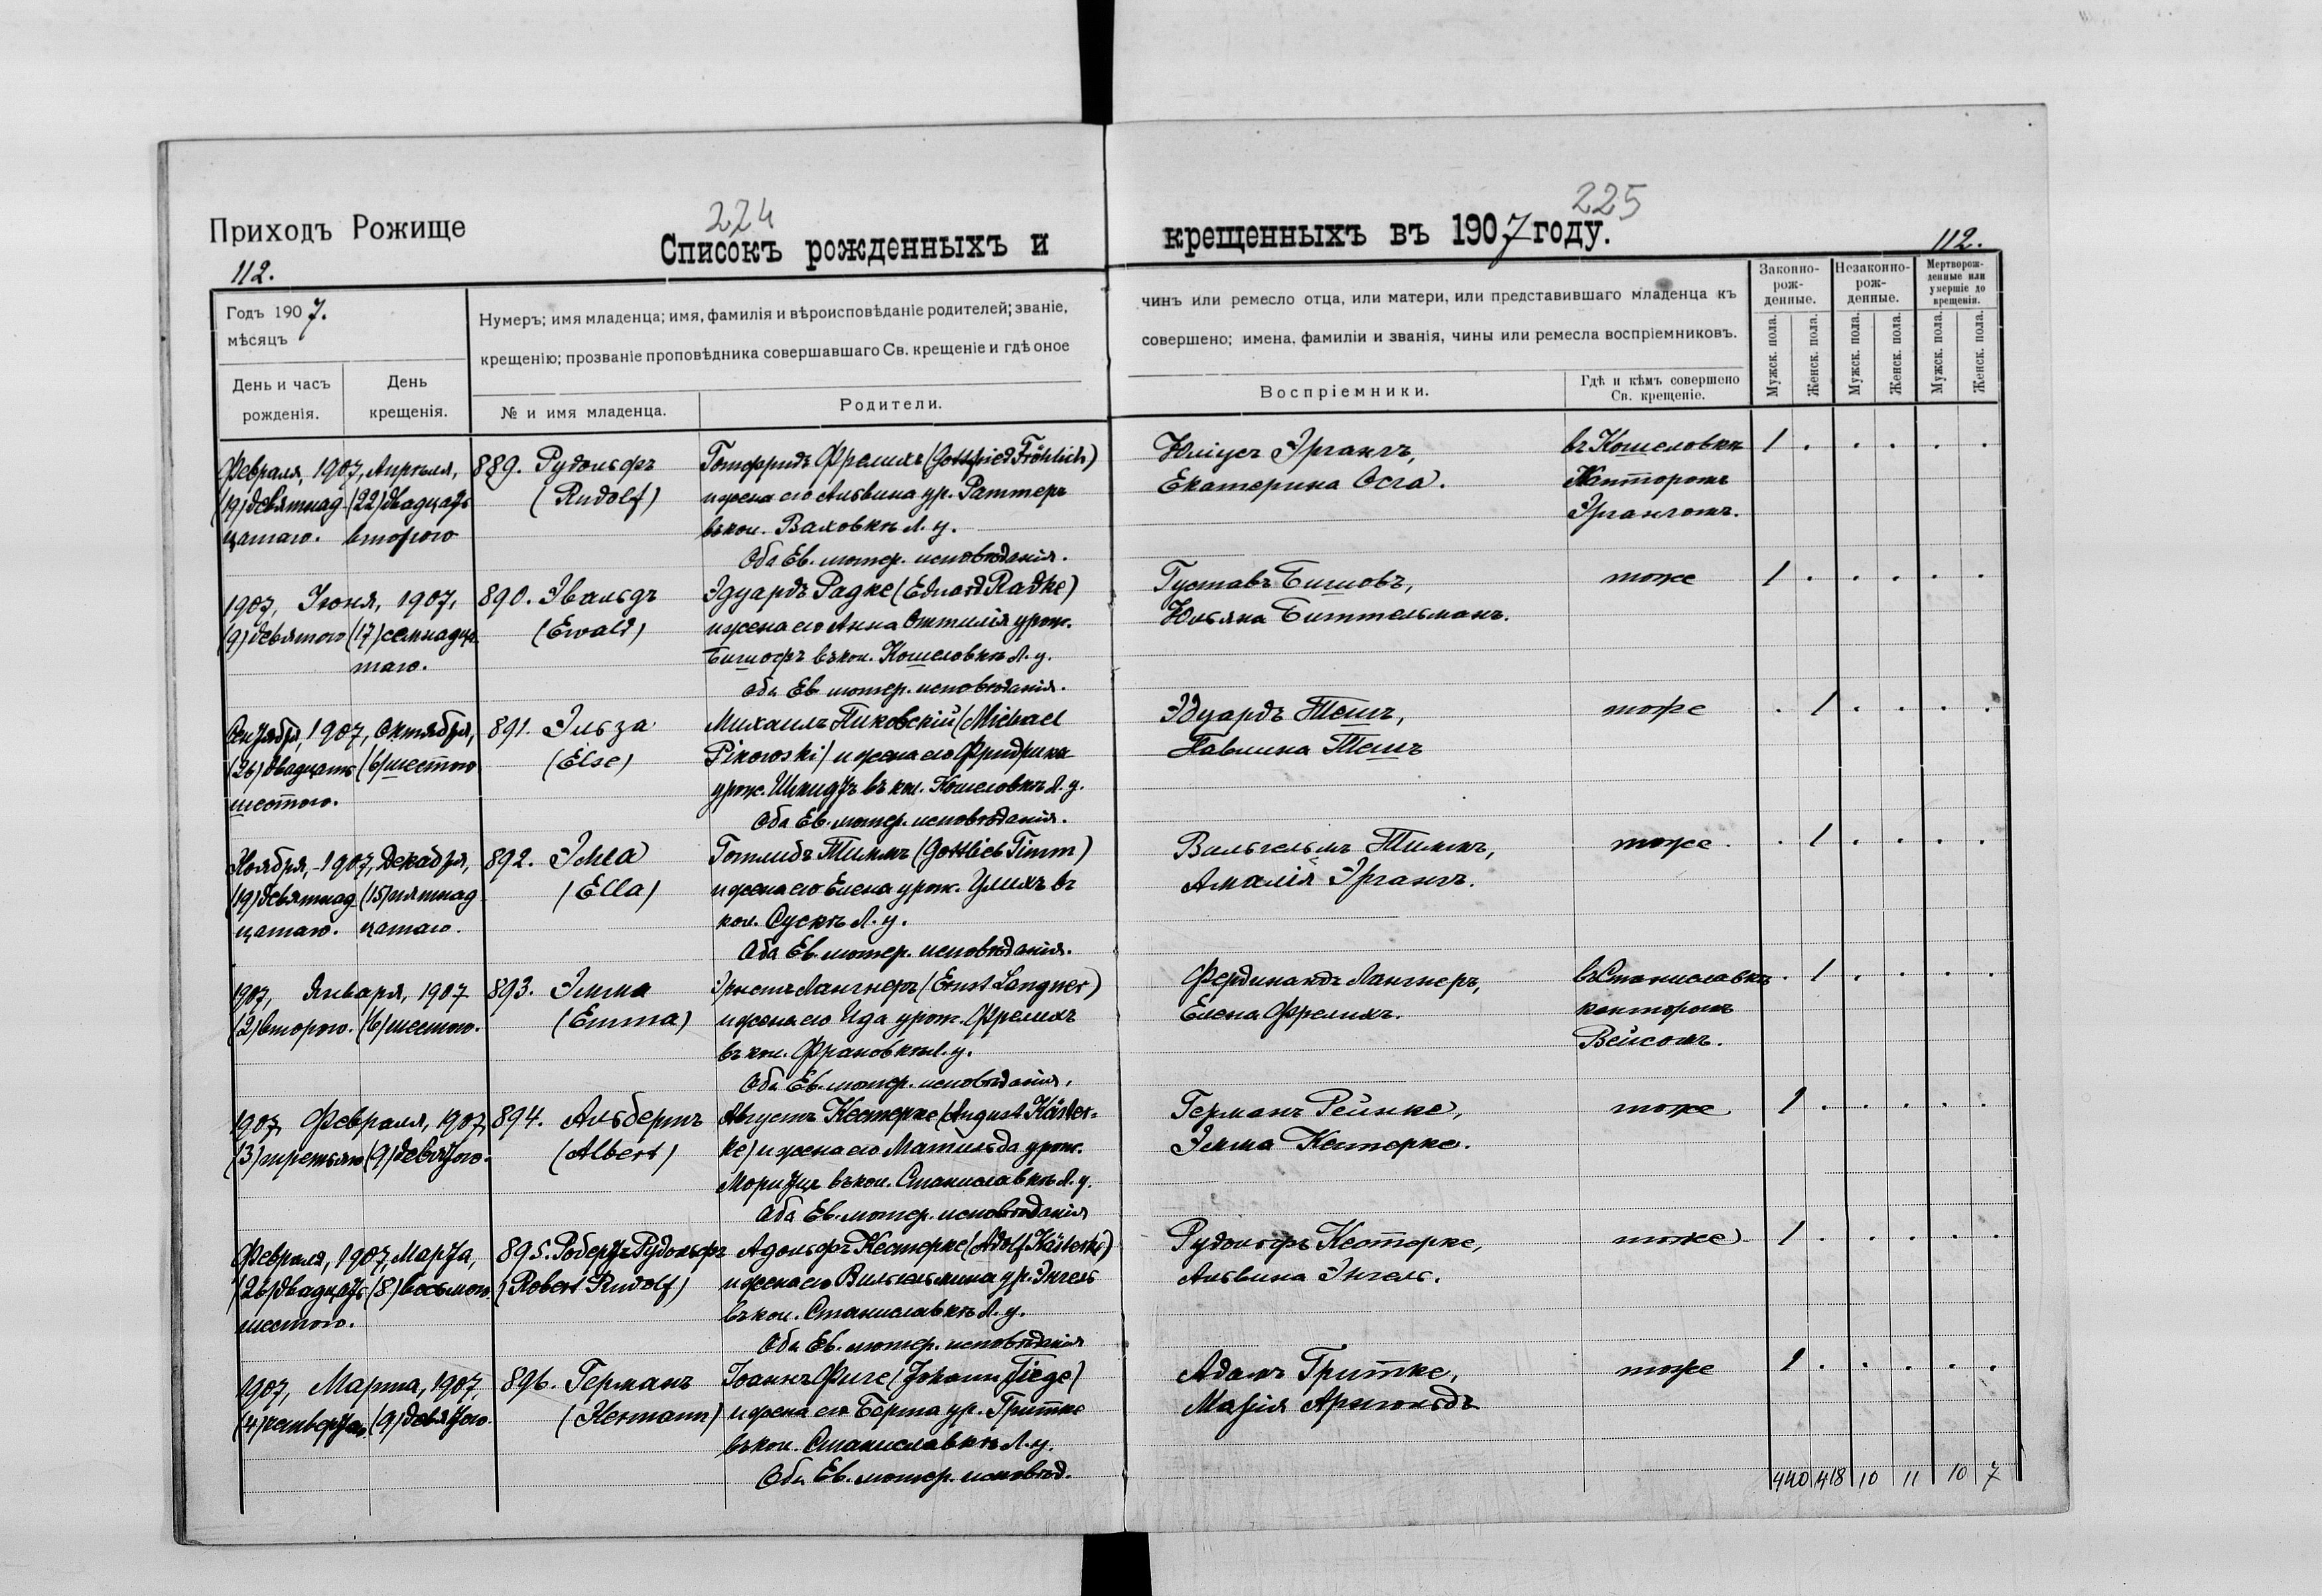 224
225
Приходъ Рожище
Списокъ рожденныхъ и
крещенныхъ въ 1907 году.
112.
112.
Годъ 1907.
мѣсяцъ
День и часъ
рожденія.
День
крещенія.
Нумеръ; имя младенца; имя, фамилія и вѣроисповѣданіе родителей; званіе,
крещенію; прозваніе проповѣдника совершавшаго Св. крещеніе и гдѣ оное
№ и имя младенца.
Родители.
чинъ или ремесло отца, или матери, или представившаго младенца къ
совершено; имена, фамиліи и званія, чины или ремесла воспріемниковъ.
Воспріемники.
Гдѣ и кѣмъ совершено
Св. крещеніе.
Законно-
рож-
денные.
Незаконно-
рож-
денные.
Мертворож-
денные или
умершіе до
крещенія.
Мужск. пола.
Женск. пола.
Мужск. пола.
Женск. пола.
Мужск. пола.
Женск. пола.
Февраля, 1907, Апрѣля,
(19) девятнад (22) двадцать
цатаго. второго
889. Рудольфъ
(Rudolf)
Готфридъ Фрелихъ (Gottfried Fröhlich)
и жена его Альвина ур. Раттеръ
въ кол. Валовкѣ Л. у.
Оба Ев. лютер. исповѣданія.
Юліусъ Эргангъ,
Екатерина Осга.
въ Кошеловкѣ
Канторомъ
Эргангомъ.
1 . . . . .
1907, Іюня, 1907,
(9) девятого (17) семнадца
таго.
890. Эвальдъ
(Ewald)
Эдуардъ Радке (Eduard Radke)
и жена его Анна Оттилія урож.
Бишофъ въ кол. Кошеловкѣ Л. у.
Оба Ев. лютер. исповѣданія.
Густавъ Бишовъ,
Юльяна Биттельманъ.
тоже
1 . . . . .
Сентября, 1907, Октября,
(26) двадцать (6) шестого
шестого.
891. Эльза
(Else)
Михаилъ Пиковскій (Michael
Pikowski) и жена его Фридрика
урож. Шмидтъ въ кол. Кошеловкѣ Л. у.
Оба Ев. лютер. исповѣданія.
Эдуардъ Тешъ,
Павлина Тешъ
тоже
. 1 . . . .
Ноября, 1907, Декабря,
(19) девятнад (15) пятнад
цатаго. цатаго.
892. Элла
(Ella)
Готлибъ Тиммъ (Gottlieb Timm)
и жена его Елена урож. Улихъ въ
кол. Сускѣ Л. у.
Оба Ев. лютер. исповѣданія.
Вильгельмъ Тиммъ,
Амалія Эргангъ.
тоже.
. 1 . . . .
1907, Января, 1907
(2) второго. (6) шестого.
893. Эмма
(Emma)
Эрнстъ Лангнеръ (Ernst Langner)
и жена его Ида урож. Фрелихъ
въ кол. Франовкѣ Л. у.
Оба Ев. лютер. исповѣданія,
Фердинандъ Лангнеръ,
Елена Фрелихъ.
въ Станиславкѣ
канторомъ
Вейсомъ.
. 1 . . . .
1907, Февраля, 1907,
(3) третьяго (9) девятого.
894. Альбертъ
(Albert)
Августъ Кестерке (August Käster-
ke) и жена его Матильда урож.
Моритцъ въ кол. Станиславкѣ Л. у.
Оба Ев. лютер. исповѣданія
Германъ Рейнке,
Эмма Кестерке.
тоже
1 . . . . .
Февраля, 1907, Марта,
(26) двадцать (8) восьмого.
шестого.
895. Робертъ Рудольфъ
(Robert Rudolf)
Адольфъ Кестерке (Adolf Kästerke)
и жена его Вильгельмина ур. Энгель
въ кол. Станиславкѣ Л. у.
Оба Ев. лютер. исповѣданія
Рудольфъ Кестерке,
Альвина Энгель.
тоже
1 . . . . .
1907, Марта, 1907,
(4) четвертаго. (9) девятого.
896. Германъ
(Hermann)
Іоаннъ Фиге (Johann Fiege)
и жена его Берта ур. Гритке
въ кол. Станиславкѣ Л. у.
Оба Ев. лютер. исповѣд.
Адамъ Гритке,
Марія Арнольдъ
тоже
1 . . . . .
440 418 10 11 10 7